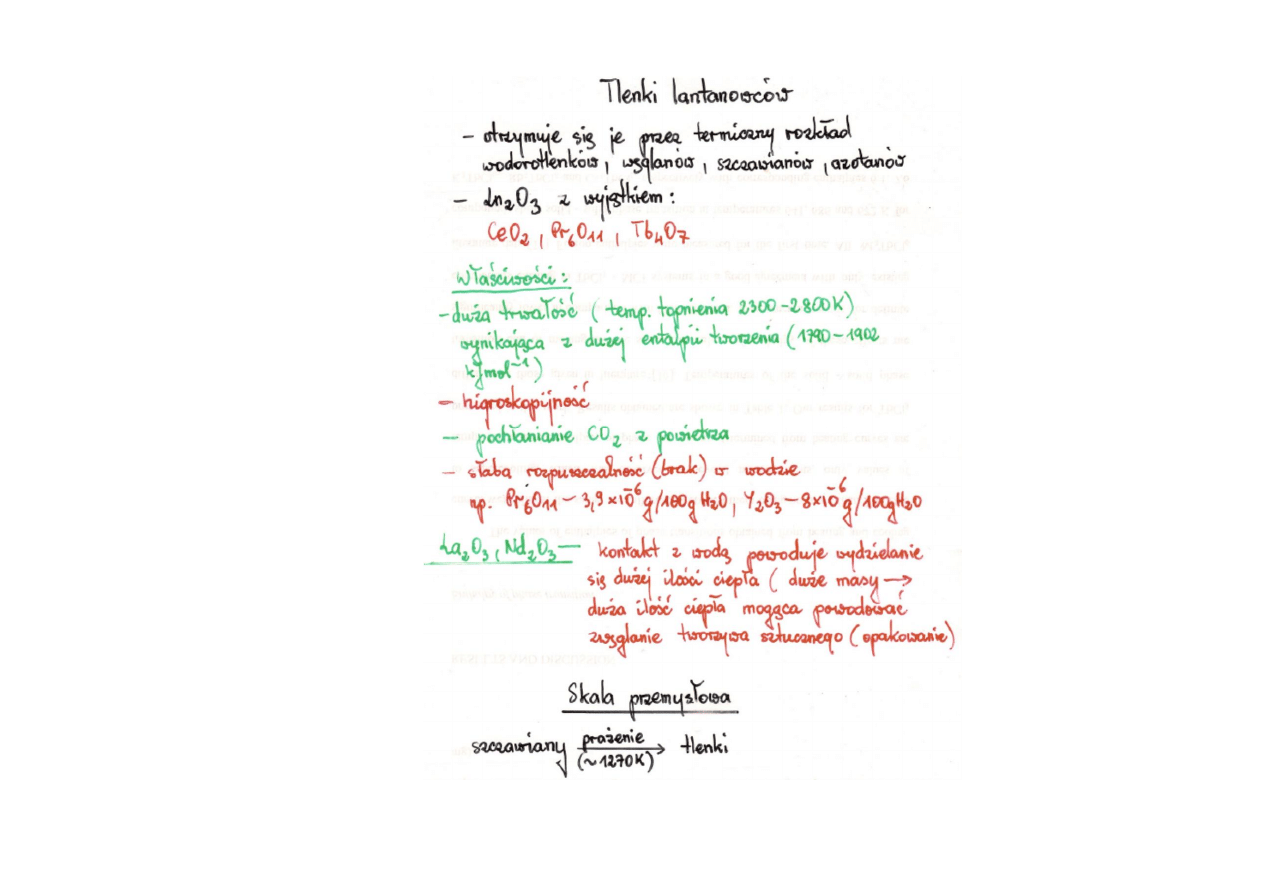 Tlenki lantanowców
- otrzymuje się je przez termiczny rozkład
wodorotlenków, węglanów, szczawianów, azotanów
- Ln₂O₃ z wyjątkiem:
CeO₂, Pr₆O₁₁, Tb₄O₇
Właściwości:
- duża trwałość (temp. topnienia 2300-2800K)
wynikająca z dużej entalpii tworzenia (1790-1902
kJmol⁻¹)
- higroskopijność
- pochłanianie CO₂ z powietrza
- słaba rozpuszczalność (brak) w wodzie
np. Pr₆O₁₁ - 3,9×10⁻⁶ g/100g H₂O, Y₂O₃ - 8×10⁻⁶ g/100g H₂O
La₂O₃, Nd₂O₃ — kontakt z wodą powoduje wydzielanie
się dużej ilości ciepła (duże masy →
duża ilość ciepła mogąca powodować
zwęglanie tworzywa sztucznego (opakowanie)
Skala przemysłowa
szczawiany prażenie → tlenki
(~1270K)